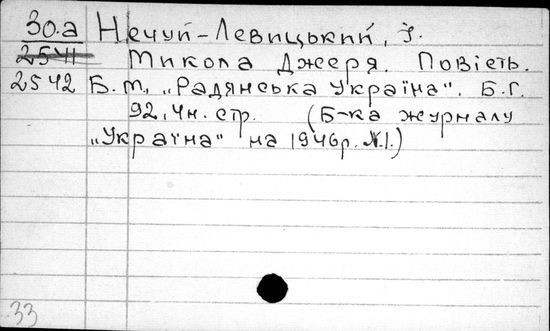 30.а Нечуй-Левицький, І.
2541 Микола Джеря. Повість.
2542 Б.м., „Радянська Україна". Б.Г.
92,4н. стр. (Б-ка журналу
„Україна" на 1946р. №1.)
33